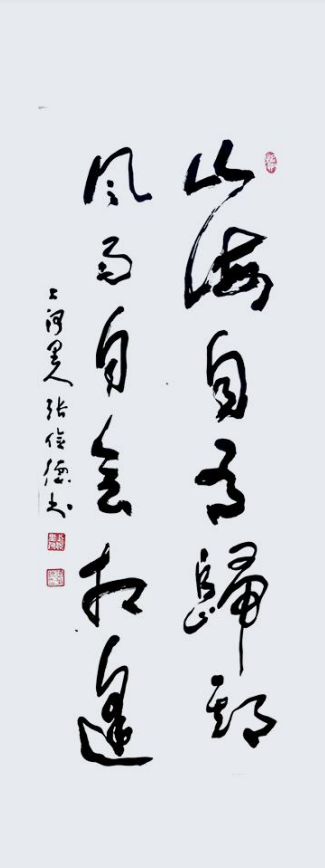 山海自有歸期
风雨自会相逢
上河人 张德书